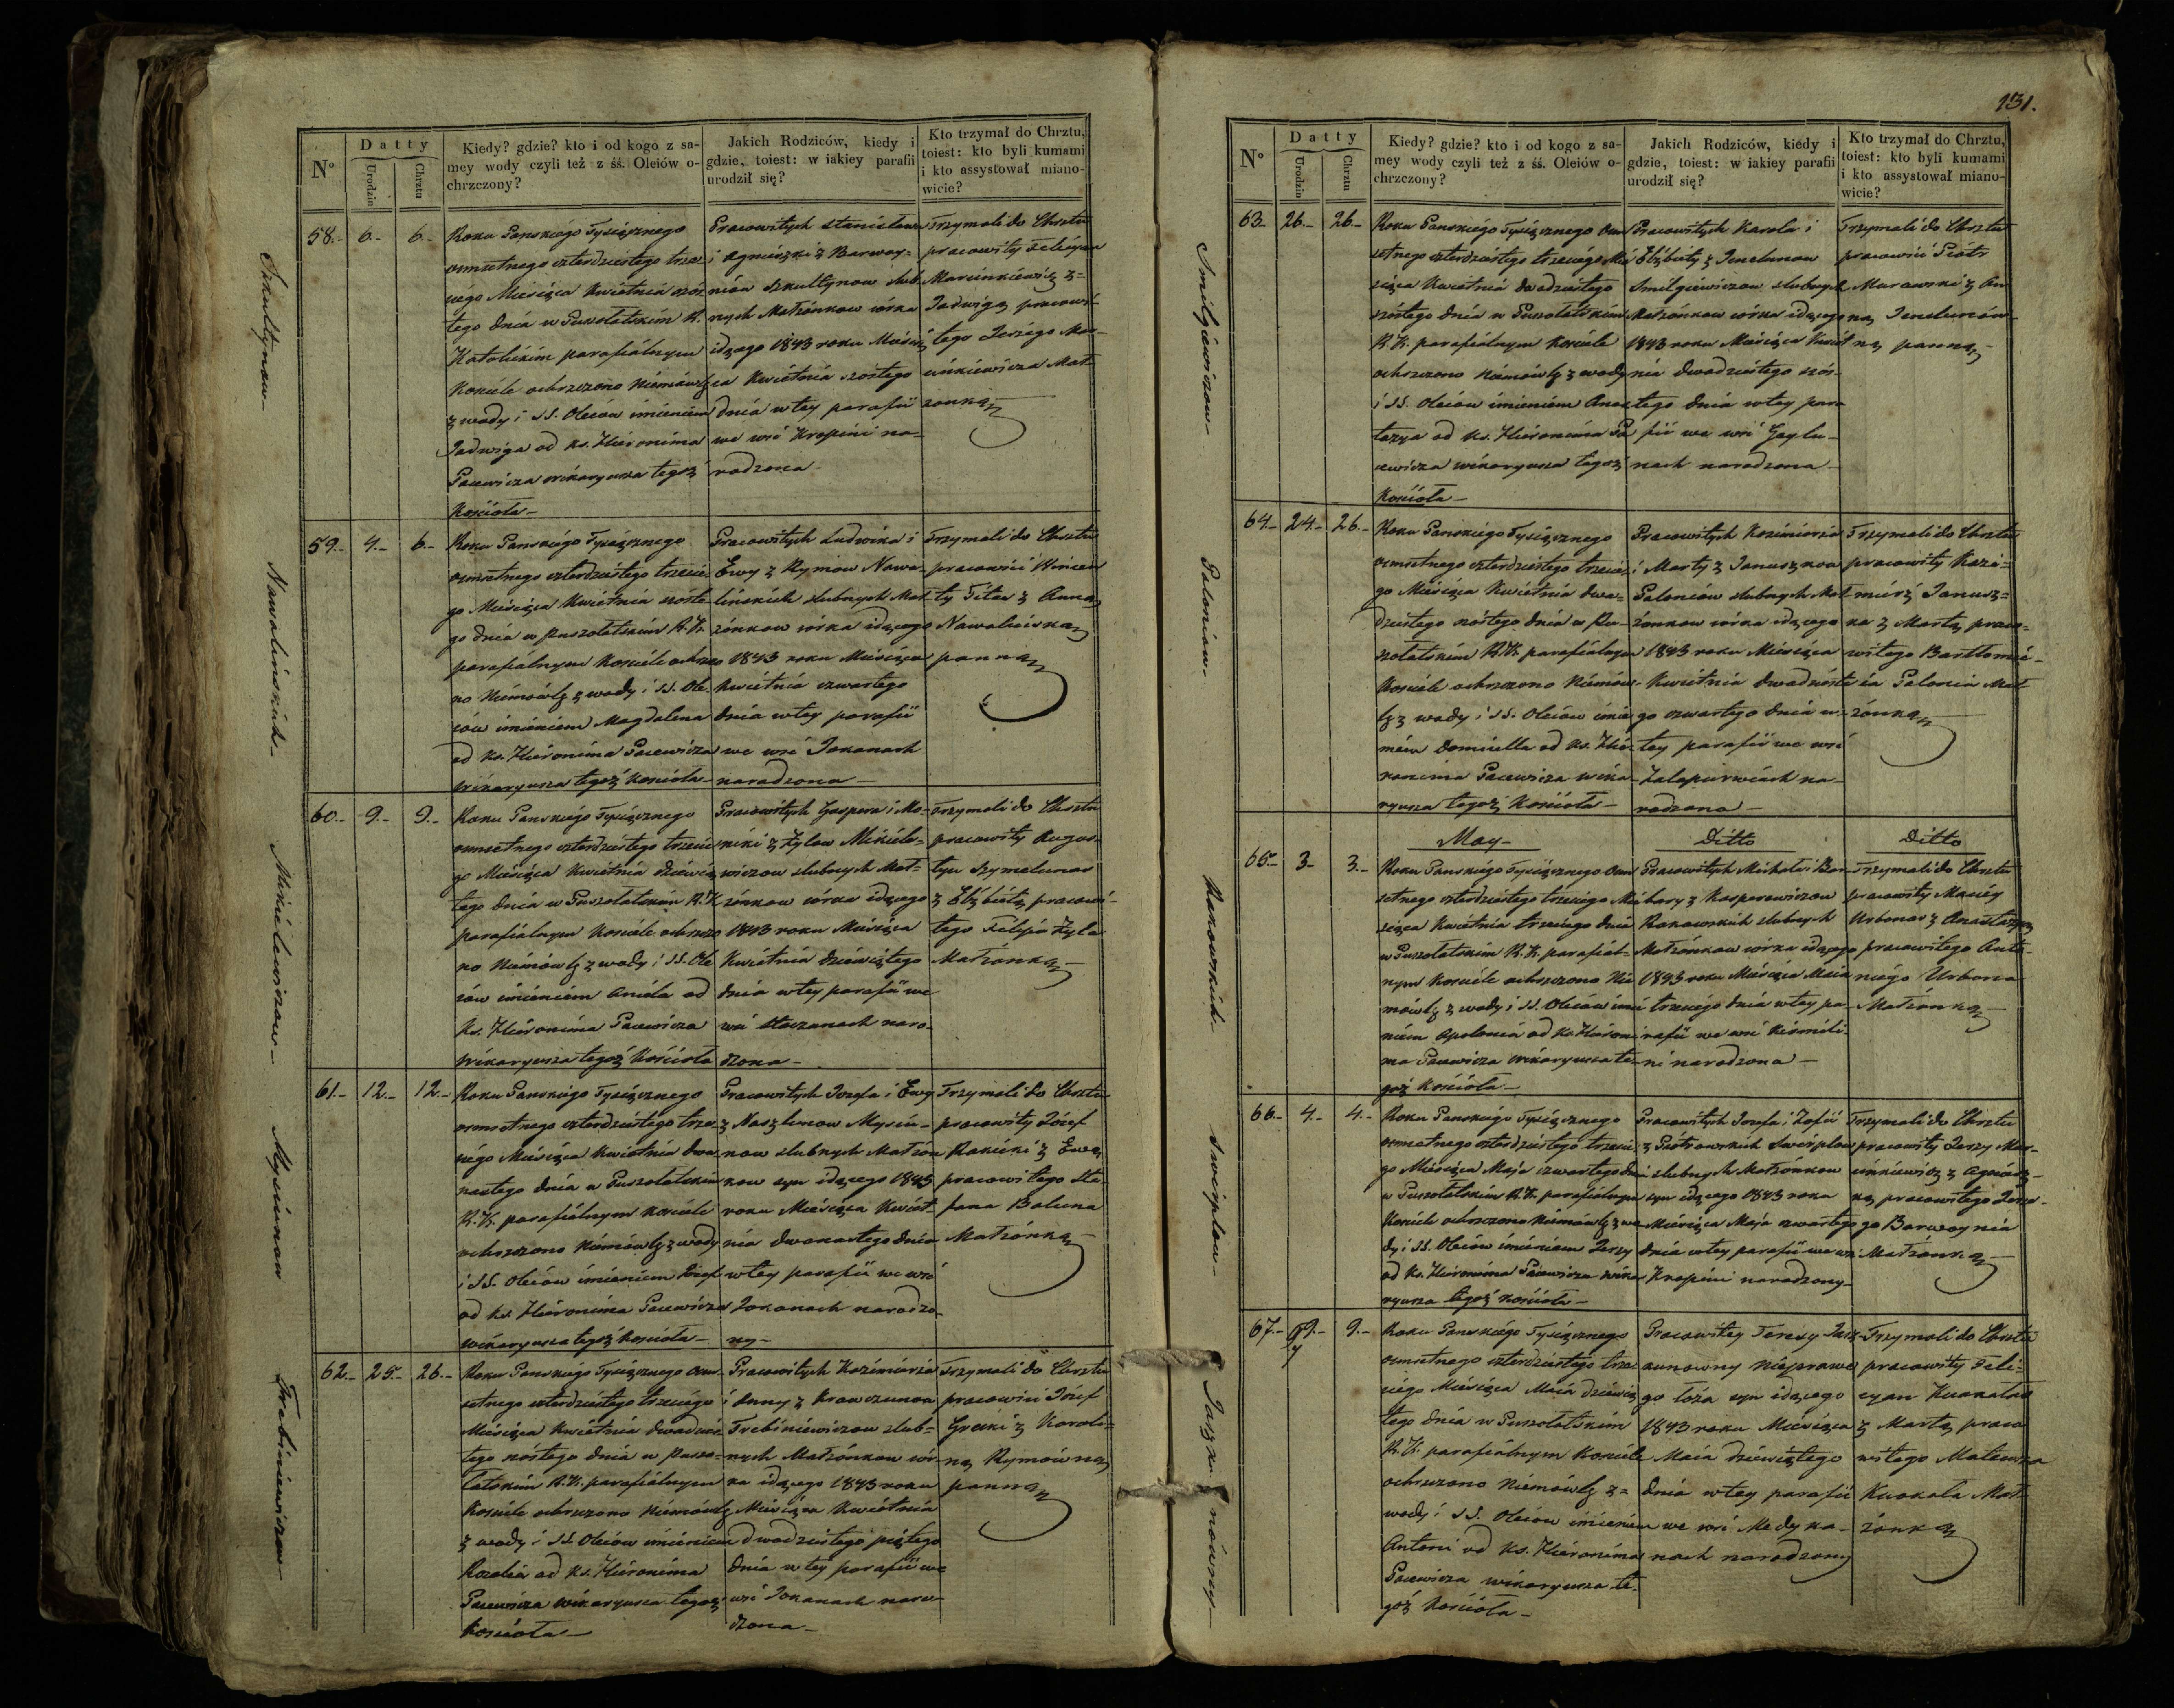 131.
N°
Datty
Urodzin
Chrztu
Kiedy? gdzie? kto i od kogo z sa-
mey wody czyli też z śś. Oleiów o-
chrzczony?
Jakich Rodziców, kiedy i
gdzie, toiest: w iakiey parafii
urodził się?
Kto trzymał do Chrztu,
toiest: kto byli kumami
i kto assystował miano-
wicie?
Szkultynow
58.- 6.- 6.-
Roku Panskiego Tysiącznego
osmsetnego czterdziestego trze-
ciego Miesiąca Kwietnia szós-
tego dnia w Puszołatskim R.
Katolickim parafialnym
Kościele ochrzczono Niemowlę
z wody i SS. Oleiów imieniem
Jadwiga od Ks. Hieronima
Pacewicza wikaryusza tegoż
Kościoła
Pracowitych Stanisława
i Agnieszki z Barwoy-
niów Szkultynow slub-
nych Małżonkow córka
idącego 1843 roku Miesią
ca Kwietnia szostego
dnia w tey parafii
we wsi Krepini na-
rodzona
Trzymali do Chrztu
pracowity Felicyan
Marcinkiewicz z
Jadwigą pracowi-
tego Jerzego Mar-
cinkiewicza Mał-
żonką
Nawalińskich
59.- 4.- 6.-
Roku Panskiego Tysiącznego
osmsetnego czterdziestego trzecie-
go Miesiąca Kwietnia szoste-
go dnia w Puszołatskim R. K.
parafialnym Kościele ochrzczo
no Niemowlę z wody i SS. Ole-
iów imieniem Magdalena
od Ks. Hieronima Pacewicza
wikaryusza tegoż Kościoła
Pracowitych Ludwika i
Ewy z Rymow Nawa-
lińskich slubnych Mał-
żonkow córka idącego
1843 roku Miesiąca
Kwietnia czwartego
dnia w tey parafii
we wsi Jokanach
narodzona
Trzymali do Chrztu
pracowici Wincen
ty Titas z Anną
Nawalińską
panną
Mikielewiczow
60.- 9.- 9.-
Roku Panskiego Tysiącznego
osmsetnego czterdziestego trzecie
go Miesiąca Kwietnia dziewią
tego dnia w Puszołatskim R. K.
parafialnym Kościele ochrzczo
no Niemowlę z wody i SS. Ole
iów imieniem Aniela od
Ks. Hieronima Pacewicza
wikaryusza tegoż Kościoła
Pracowitych Gaspera i Mo-
niki z Zylow Mikiele-
wiczow slubnych Mał-
żonkow córka idącego
1843 roku Miesiąca
Kwietnia dziewiątego
dnia w tey parafii we
wsi Stoczanach naro-
dzona
Trzymali do Chrztu
pracowity Augus-
tyn Szymelunas
z Elżbietą pracowi-
tego Filipa Zyla
Małżonką
Mysiunow
61.- 12.- 12.-
Roku Panskiego Tysiącznego
osmsetnego czterdziestego trze-
ciego Miesiąca Kwietnia dwu
nastego dnia w Puszołatskim
R. K. parafialnym Kościele
ochrzczono Niemowlę z wody
i SS. Oleiów imieniem Józef
od Ks. Hieronima Pacewicza
wikaryusza tegoż Kościoła
Pracowitych Jozefa i Ewy
z Naszlenow Mysiu-
now slubnych Małżon
kow syn idącego 1843
roku Miesiąca Kwiet
nia dwonastego dnia
w tey parafii we wsi
Jokanach narodzo-
ny
Trzymali do Chrztu
pracowity Józef
Rakicki z Ewą
pracowitego Ste-
fana Baluna
Małżonką
Trebiniewiczow
62.- 25.- 26.-
Roku Panskiego Tysiącznego osm-
setnego czterdziestego trzeciego
Miesiąca Kwietnia dwudzies-
tego szóstego dnia w Puszo-
łatskim R. K. parafialnym
Kościele ochrzczono Niemowlę
z wody i SS. Oleiów imieniem
Rozalia od Ks. Hieronima
Pacewicza wikaryusza tegoż
Kościoła
Pracowitych Kazimierza
i Anny z Krawczunow
Trebiniewiczow slub-
nych Małżonkow cór-
ka idącego 1843 roku
Miesiąca Kwietnia
dwudziestego piątego
dnia w tey parafii we
wsi Jokanach naro-
dzona
Trzymali do Chrztu
pracowici Jozef
Grecki z Karoli-
ną Rymówną
panną
Smilgiewiczow
63.- 26.- 26.-
Roku Panskiego Tysiącznego osm
setnego czterdziestego trzeciego Mie
siąca Kwietnia dwudziestego
szóstego dnia w Puszołatskim
R. K. parafialnym Kościele
ochrzczono Niemowlę z wody
i SS. Oleiów imieniem Anas
tazya od Ks. Hieronima Pa
cewicza wikaryusza tegoż
Kościoła
Pracowitych Karola i
Elżbiety z Jenelunow
Smilgiewiczow slubnych
Małżonkow córka idącego
1843 roku Miesiąca Kwiet
nia dwudziestego szós-
tego dnia w tey para
fii we wsi Gaylu-
nach narodzona
Trzymali do Chrztu
pracowici Piotr
Murawski z An
ną Jenelunów-
ną panną
Paloniow
64.- 24.- 26.-
Roku Panskiego Tysiącznego
osmsetnego czterdziestego trzecie
go Miesiąca Kwietnia dwu-
dziestego szóstego dnia w Pu-
szołatskim R. K. parafialnym
Kościele ochrzczono Niemow-
lę z wody i SS. Oleiów imie
niem Domicella od Ks. Hie-
ronima Pacewicza wika-
ryusza tegoż Kościoła
Pracowitych Kazimierza
i Marty z Januszkow
Paloniow slubnych Mał
żonkow córka idącego
1843 roku Miesiąca
Kwietnia dwudzieste
go czwartego dnia w
tey parafii we wsi
Zalepiurwiach na-
rodzona
Trzymali do Chrztu
pracowity Kazi-
mierz Janusz-
ka z Martą praco-
witego Bartłomie-
ia Palonia Mał
żonką
May
Ditto
Ditto
Rakowskich
65.- 3.- 3.-
Roku Panskiego Tysiącznego osm
setnego czterdziestego trzeciego Mie
siąca Kwietnia trzeciego dnia
w Puszołatskim R. K. parafial-
nym Kościele ochrzczono Nie
mowlę z wody i SS. Oleiów imie
niem Apolonia od Ks. Hieroni
ma Pacewicza wikaryusza te-
goż Kościoła
Pracowitych Michała i Bar-
bary z Kasperowiczow
Rakowskich slubnych
Małżonkow córka idącego
1843 roku Miesiąca Maia
trzeciego dnia w tey pa-
rafii we wsi Kiermeli-
ni narodzona
Trzymali do Chrztu
pracowity Maciey
Urbonas z Anastazyą
pracowitego Anto-
niego Urbona
Małżonką
Swirplow
66.- 4.- 4.-
Roku Panskiego Tysiącznego
osmsetnego czterdziestego trzecie
go Miesiąca Maja czwartego dnia
w Puszołatskim R. K. parafialnym
Kościele ochrzczono Niemowlę z wo
dy i SS. Oleiów imieniem Jerzy
od Ks. Hieronima Pacewicza wika
ryusza tegoż Kościoła
Pracowitych Jozefa i Zofii
z Piotrowskich Swirplow
slubnych Małżonkow
syn idącego 1843 roku
Miesiąca Maja czwartego
dnia w tey parafii we wsi
Krepini narodzony
Trzymali do Chrztu
pracowity Jerzy Mar-
cinkiewicz z Agniesz-
ką pracowitego Jerze-
go Barwoynia
Małżonką
67.- 9.- 9.-
Roku Panskiego Tysiącznego
osmsetnego czterdziestego trze
ciego Miesiąca Maia dziewią
tego dnia w Puszołatskim
R. K. parafialnym Kościele
ochrzczono Niemowlę z
wody i SS. Oleiów imieniem
Antoni od Ks. Hieronima
Pacewicza wikaryusza te-
goż Kościoła
Pracowitey Teresy Jusz-
kunowny nieprawe
go łoża syn idącego
1843 roku Miesiąca
Maia dziewiątego
dnia w tey parafii
we wsi Medyka-
nach narodzony
Trzymali do Chrztu
pracowity Feli-
cyan Kuokalas
z Martą praco
witego Mateusza
Kuokala Mał-
żonką